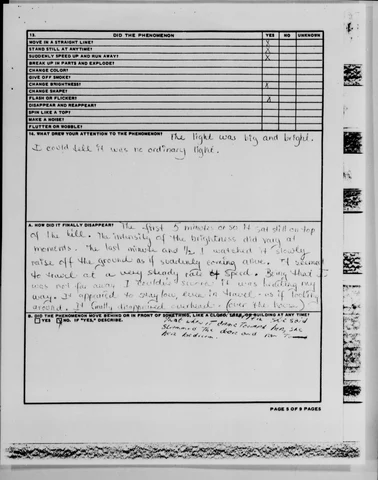 15. DID THE PHENOMENON YES NO UNKNOWN
MOVE IN A STRAIGHT LINE? X
STAND STILL AT ANYTIME? X
SUDDENLY SPEED UP AND RUN AWAY? X
BREAK UP IN PARTS AND EXPLODE?
CHANGE COLOR?
GIVE OFF SMOKE?
CHANGE BRIGHTNESS? X
CHANGE SHAPE?
FLASH OR FLICKER? X
DISAPPEAR AND REAPPEAR?
SPIN LIKE A TOP?
MAKE A NOISE?
FLUTTER OR WOBBLE?
16. WHAT DREW YOUR ATTENTION TO THE PHENOMENON? The light was big and bright.
I could tell it was no ordinary light.
A. HOW DID IT FINALLY DISAPPEAR? The first 5 minutes or so it sat still on top
of the hill. The intensity of the brightness did vary at
moments. The last minute and ½ I watched it slowly
raise off the ground as if suddenly coming alive. It seemed
to travel at a very steady rate of speed. Being that I
was not far away I it was heading my
way. It appeared to stay low, even in travel - as if looking
around. It finally disappeared overhead (over the house)
B. DID THE PHENOMENON MOVE BEHIND OR IN FRONT OF SOMETHING, LIKE A CLOUD, TREE, OR BUILDING AT ANY TIME?
YES NO. IF "YES," DESCRIBE. she said
That when it came toward her, she
slammed the door and ran to
her bedroom.
PAGE 5 OF 9 PAGES